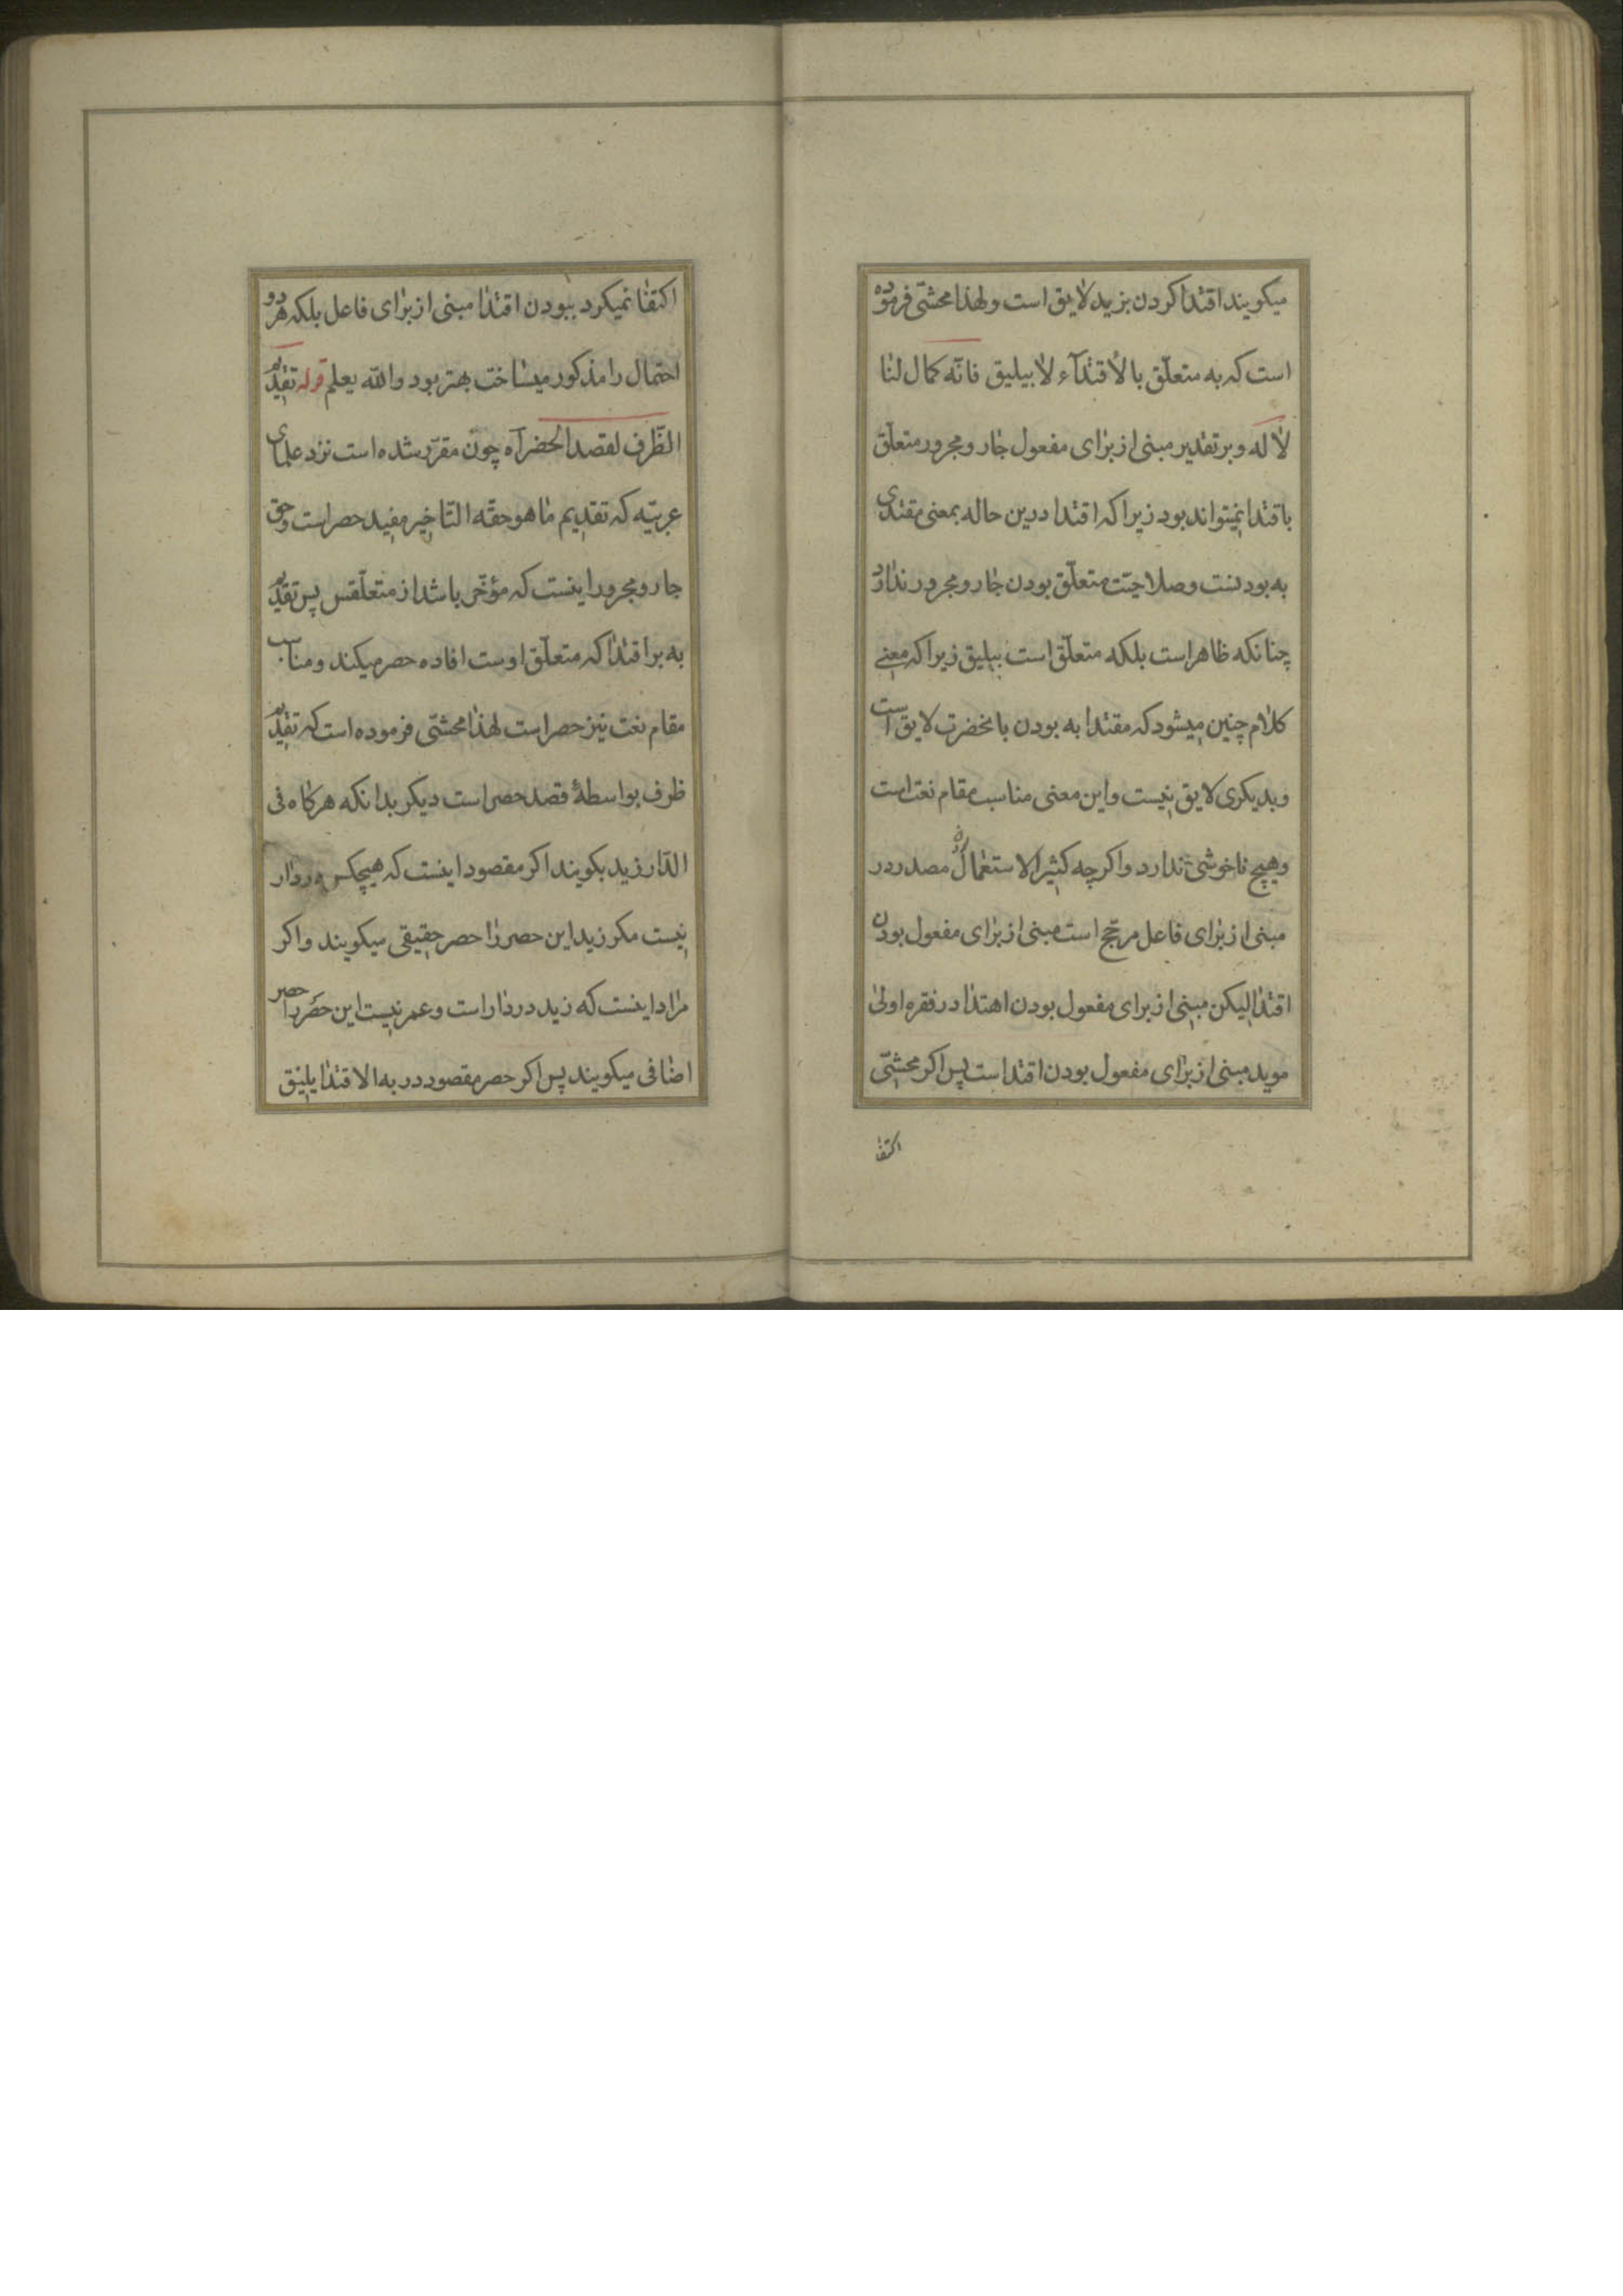 میکویند اقتدا کردن بزید لایق است ولهذا محشّی فرموده
است که به متعلّق بالأقتدآء لا بیلیق فانّه کمال لنا
لا له وبر تقدیر مبنی از برای مفعول جار ومجرور متعلّق
باقتدا نمیتواند بود زیرا که اقتدا درین حاله بمعنی مقتدی
به بودنست وصلاحیّت متعلّق بودن جار ومجرور ندارد
چنانکه ظاهر است بلکه متعلّق است بیلیق زیرا که معنی
کلام چنین میشود که مقتدا به بودن بانحضرت لایق است
وبدیکری لایق نیست واین معنی مناسب مقام نعت است
وهیچ ناخوشی ندارد واکرچه کثیر الاستعمال مصدر در
مبنی از برای فاعل مرجّح است مبنی از برای مفعول بودن
اقتدا لیکن مبنی از برای مفعول بودن اهتدا در فقره اولی
موید مبنی از برای مفعول بودن اقتدا است پس اکر محشّی
اکتفا
اکتفا نمیکرد ببودن اقتدا مبنی از برای فاعل بلکه هر دو
احتمال را مذکور میساخت بهتر بود والله یعلم قوله تقدیم
الظّرف لقصد الحضرآه چون مقرّر شده است نزد علمای
عربیّه که تقدیم ما هو حقّه التاخیر مفید حصر است وحق
جار ومجرور اینست که مؤخّر باشد از متعلّقس پس تقدیم
به بر اقتدا که متعلّق اوست افاده حصر میکند ومناسب
مقام نعت نیز حصر است لهذا محشّی فرموده است که تقدیم
ظرف بواسطهٔ قصد حصر است دیکر بدانکه هرکاه فی
الدّار زید بکویند اکر مقصود اینست که هیچکس در دار
نیست مکر زید این حصر را حصر حقیقی میکویند واکر
مراد اینست که زید در دار است وعمر نیست این حصر را حصر
اضافی میکویند پس اکر حصر مقصود در به الاقتدا یلیق